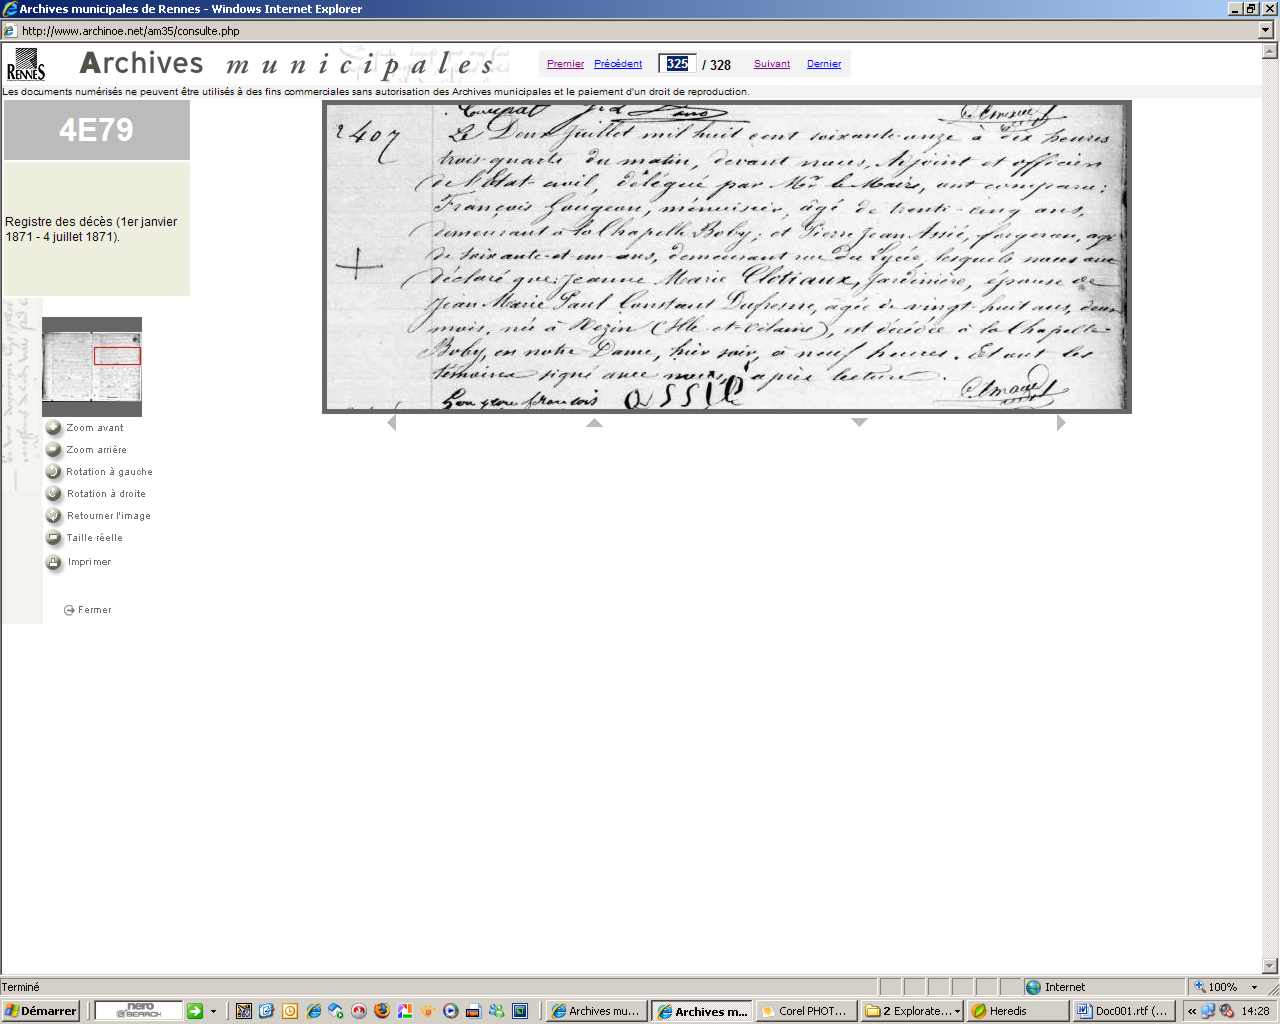 Archives municipales de Rennes - Windows Internet Explorer
http://www.archinoe.net/am35/consulte.php
RENNES
Archives municipales
Premier Précédent 325 / 328 Suivant Dernier
Les documents numérisés ne peuvent être utilisés à des fins commerciales sans autorisation des Archives municipales et le paiement d'un droit de reproduction.
4E79
Registre des décès (1er janvier
1871 - 4 juillet 1871).
Zoom avant
Zoom arrière
Rotation à gauche
Rotation à droite
Retourner l'image
Taille réelle
Imprimer
Fermer
2407
Le Deux juillet mil huit cent soixante-onze à dix heures
trois-quarts du matin, devant nous, Adjoint et officier
de l'Etat-civil, délégué par Mr le Maire, ont comparu:
François Gougeon, menuisier, âgé de trente-cinq ans,
demeurant à la Chapelle Boby; et Pierre Jean Assié, forgeron, âgé
de soixante-et-un-ans, demeurant rue du Lycée, lesquels nous ont
déclaré que: Jeanne Marie Clotiaux, Jardinière, épouse de
Jean Marie Paul Constant Dufresne, âgée de vingt-huit ans, deux
mois, née à Vezin (Ille-et-Vilaine), est décédée à la Chapelle
Boby, en notre Dame, hier soir, à neuf heures. Et ont les
témoins signé avec nous, après lecture.
Gougeon francois assie
Terminé
Internet
100%
Démarrer
nero
SEARCH
Archives mu...
Archives m...
Corel PHOT...
2 Explorate...
Heredis
Doc001.rtf (...
«
14:28